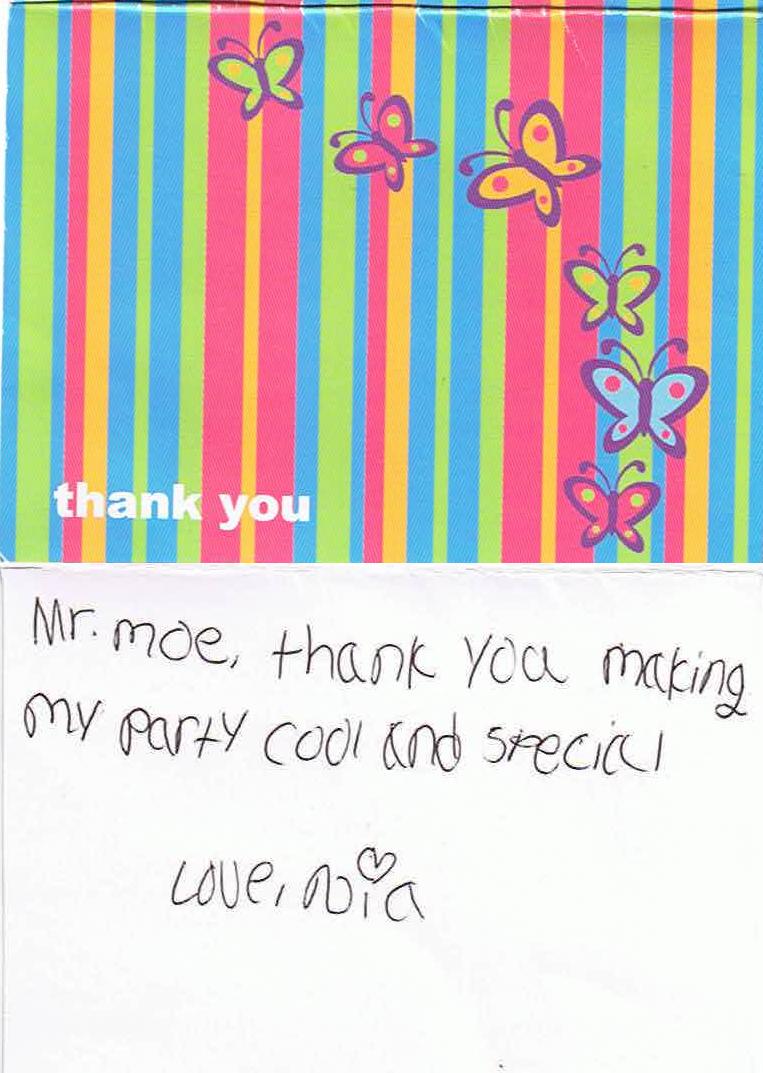 thank you
Mr. moe, thank you making
my party cool and special
Love, Nia